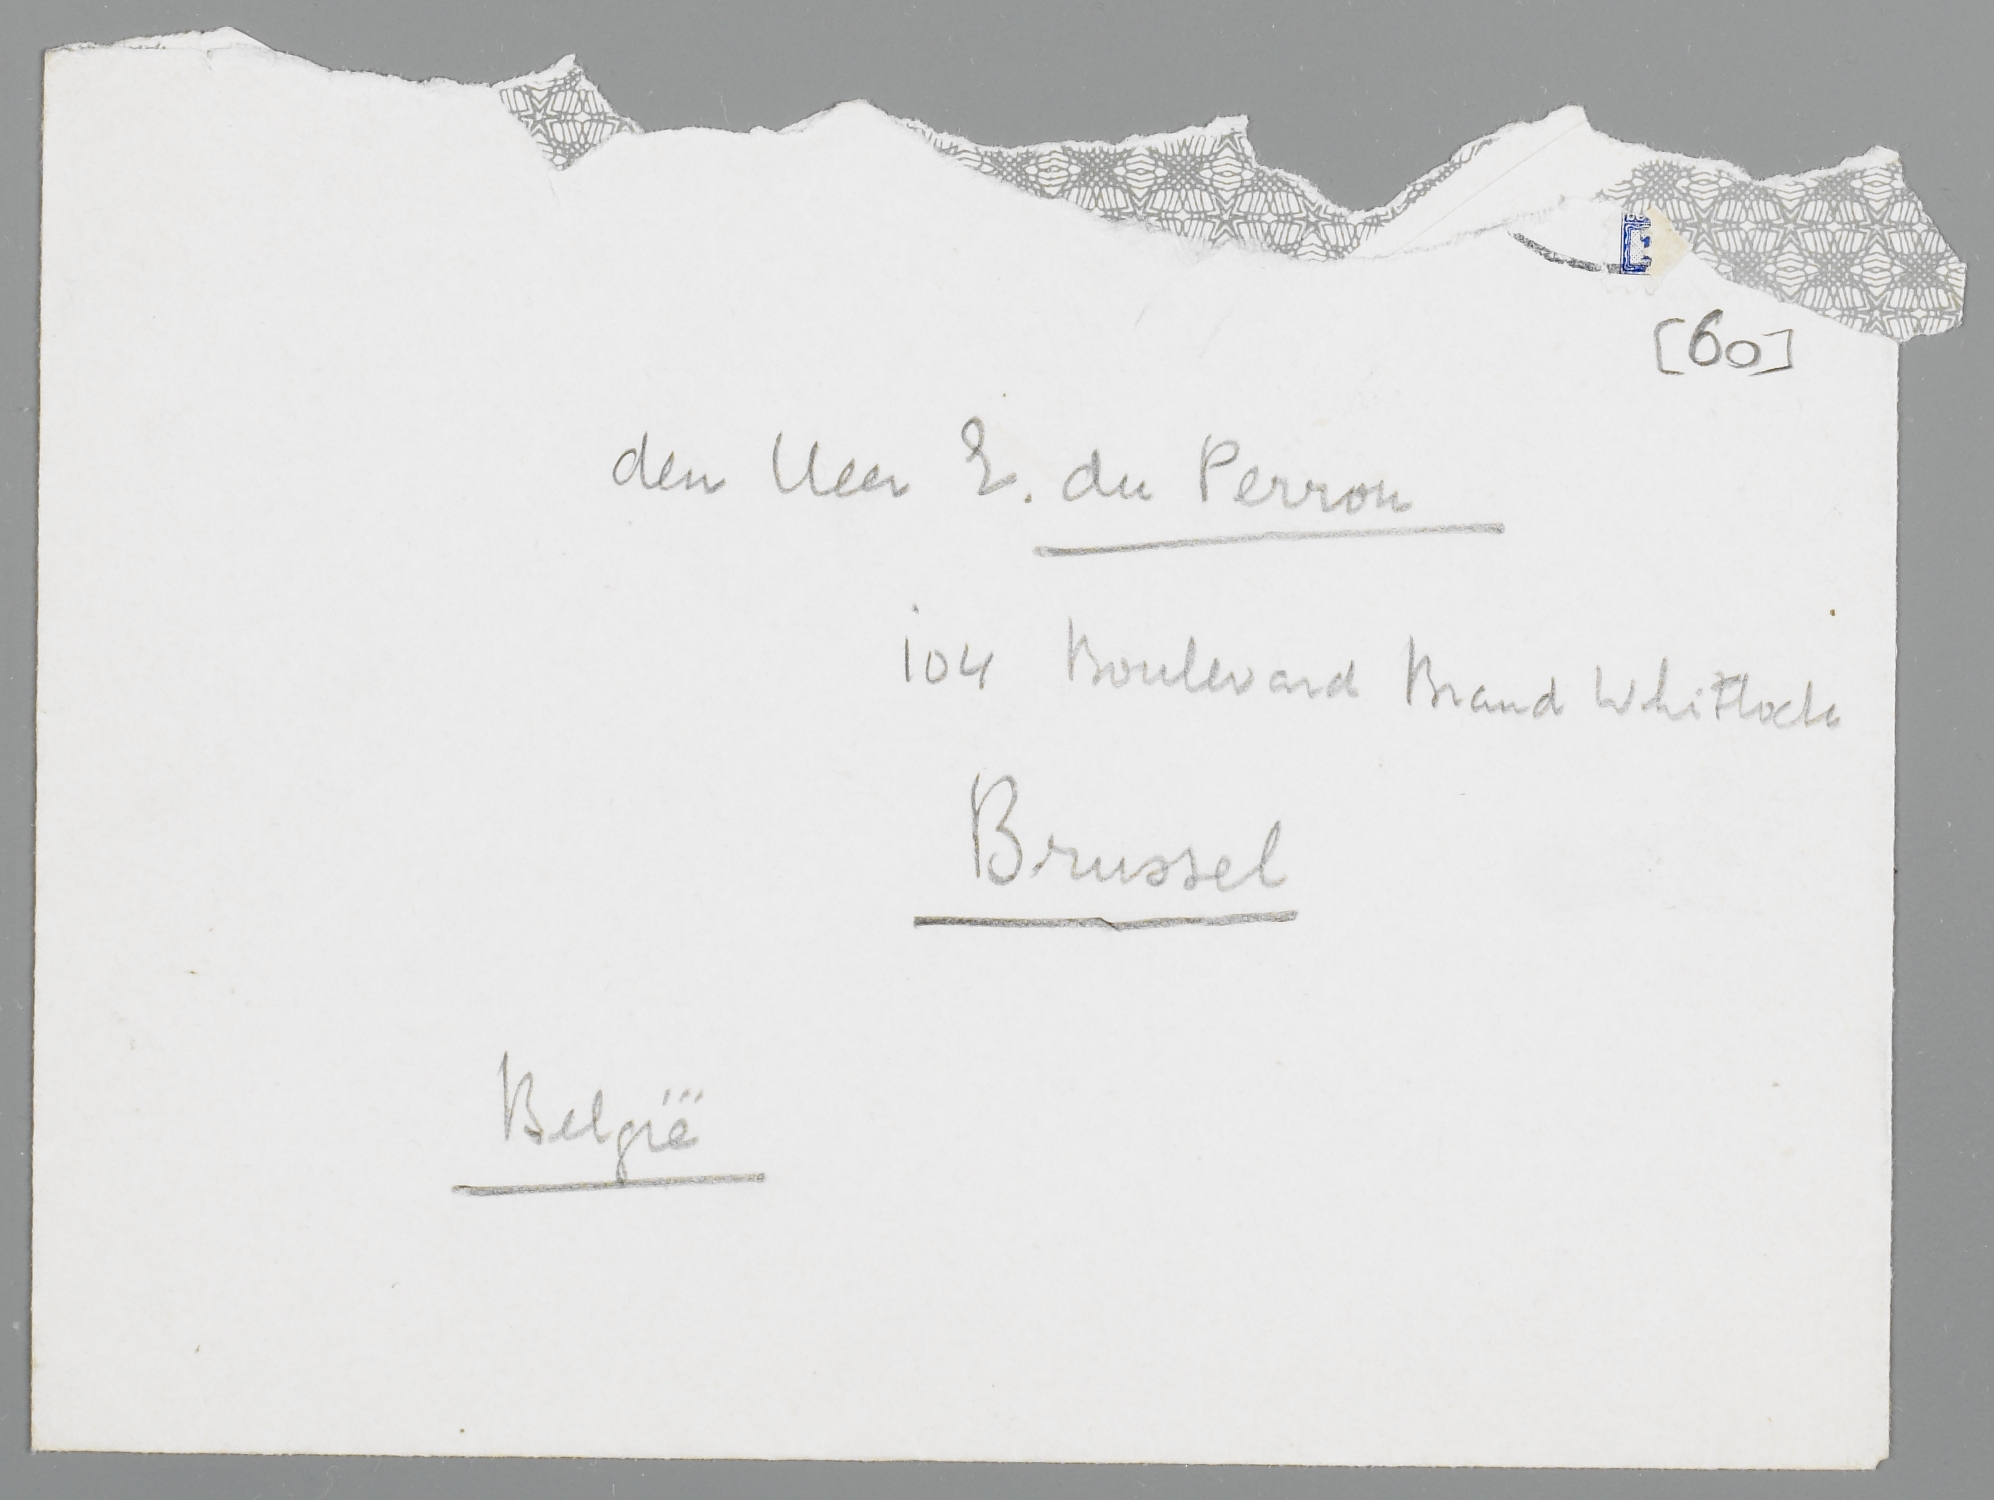 [60]
den Heer E. du Perron
104 Boulevard Brand Whitlock
Brussel
België